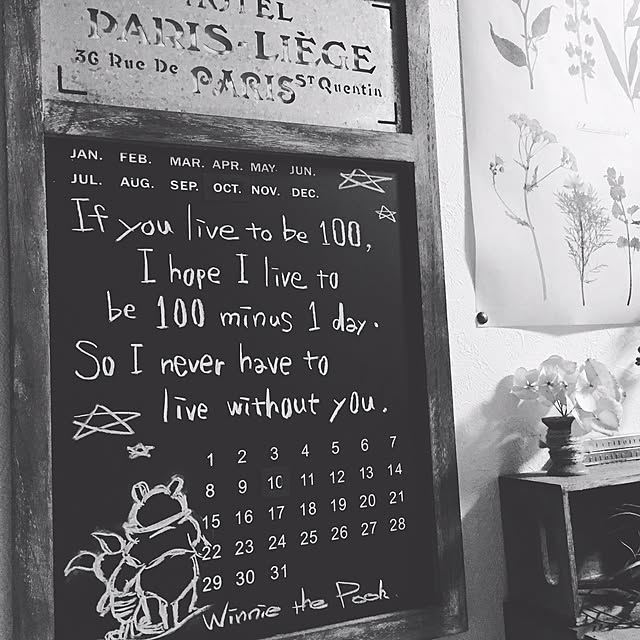 HOTEL
PARIS-LIÈGE
36 Rue De PARIS ST Quentin
JAN. FEB. MAR. APR. MAY. JUN.
JUL. AUG. SEP. OCT. NOV. DEC.
If you live to be 100,
I hope I live to
be 100 minus 1 day.
So I never have to
live without you.
1 2 3 4 5 6 7
8 9 10 11 12 13 14
15 16 17 18 19 20 21
22 23 24 25 26 27 28
29 30 31
Winnie the Pooh.